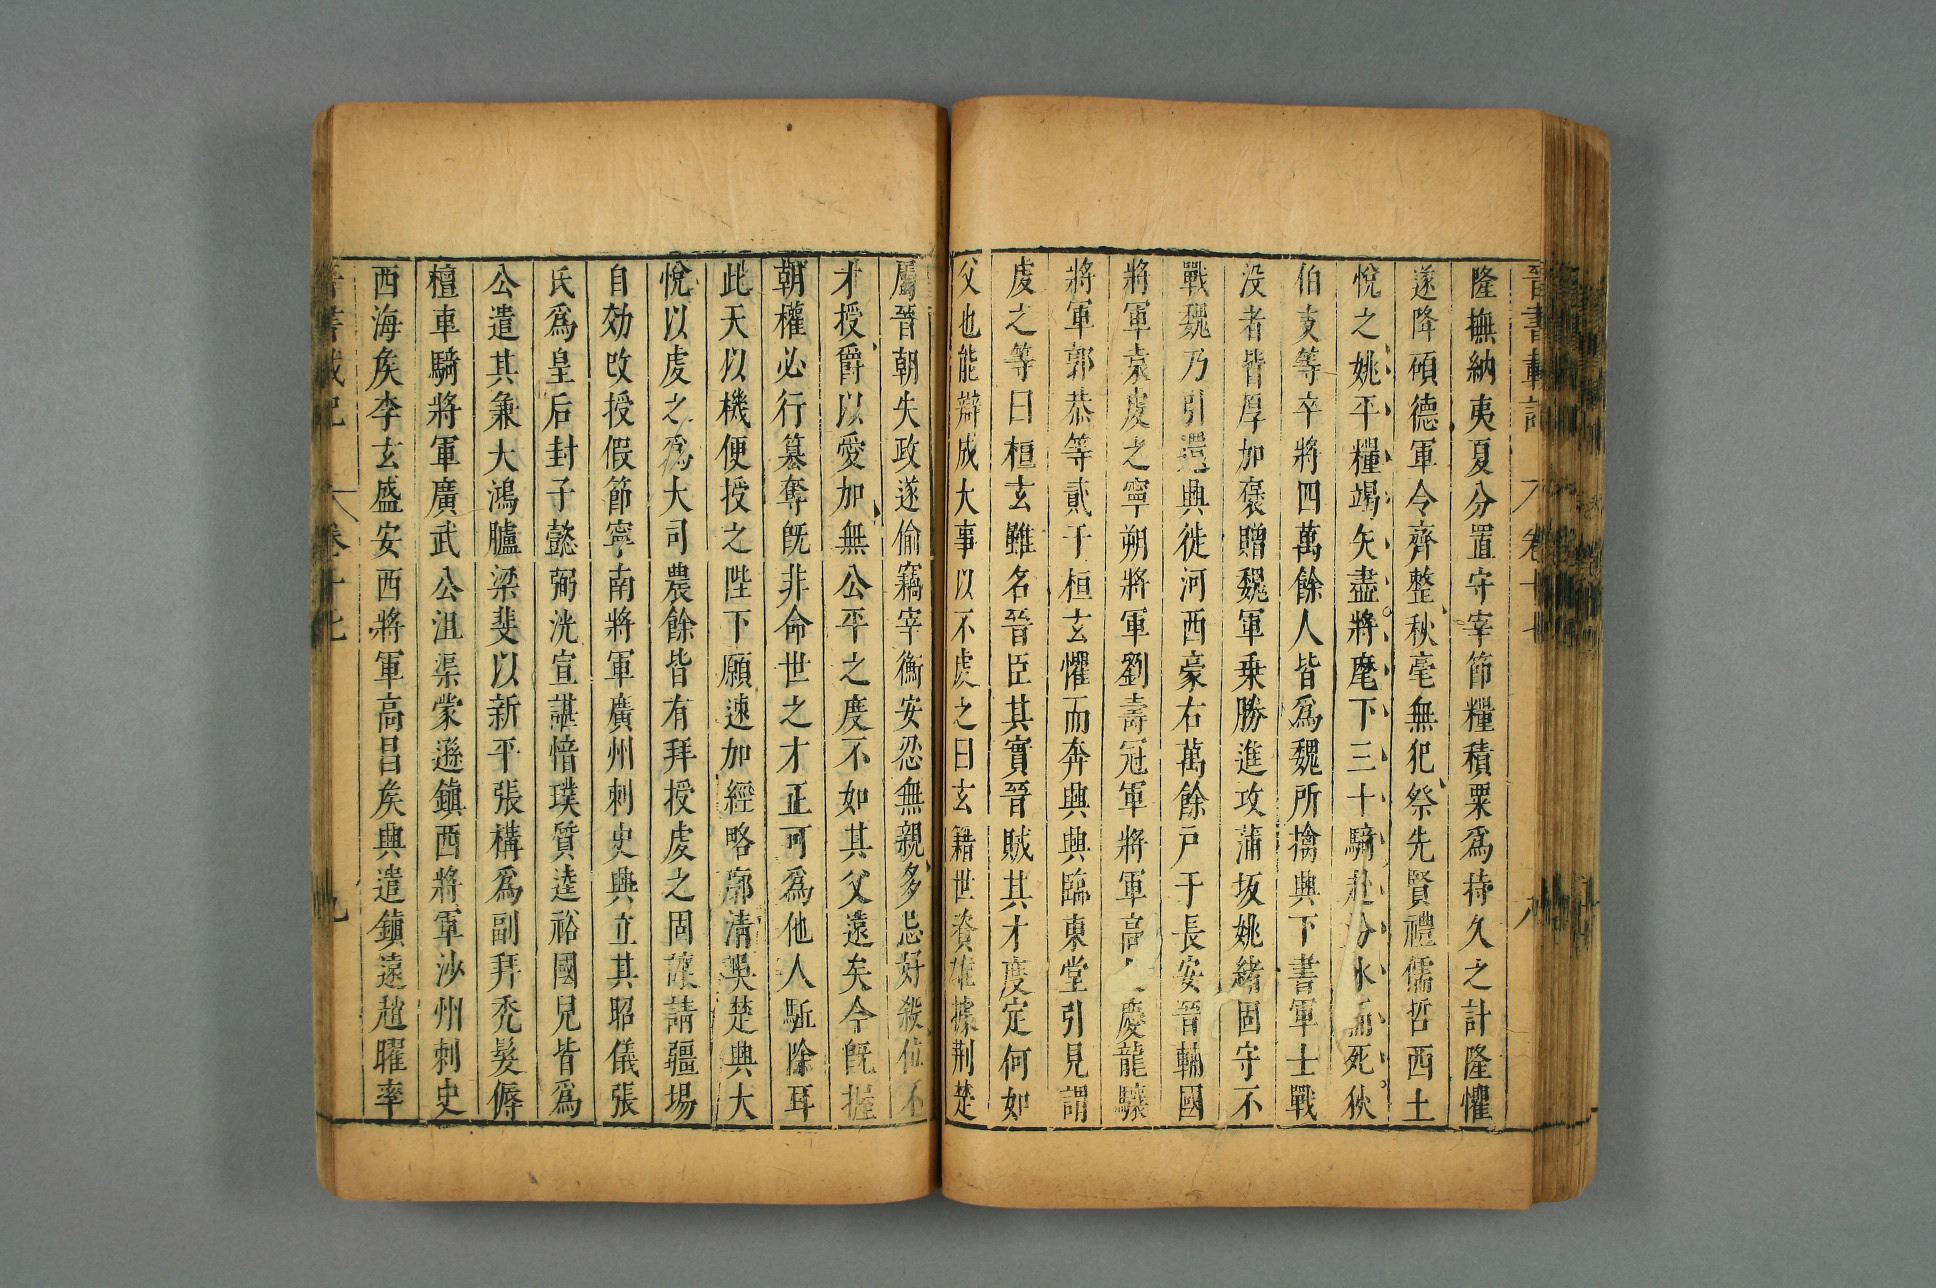 晉書載記 卷十七 八
隆撫納夷夏分置守宰節糧積粟爲持久之計隆懼
遂降碩德軍令齊整秋毫無犯祭先賢禮儒哲西土
悅之姚平糧竭矢盡將麾下三十騎赴汾水而死狄
伯支等卒將四萬餘人皆爲魏所擒興下書軍士戰
没者皆厚加襃贈魏軍乗勝進攻蒲坂姚緒固守不
戰魏乃引還興徙河西豪右萬餘戸于長安晉輔國
將軍袁虔之寧朔將軍劉壽冠軍將軍高慶龍驤
將軍郭恭等貳于桓玄懼而奔興興臨東堂引見謂
虔之等曰桓玄雖名晉臣其實晉賊其才度定何如
父也能辯成大事以不虔之曰玄籍世資雄據荆楚
屬晉朝失政遂偷竊宰衡安忍無親多忌好殺位不
才授爵以愛加無公平之度不如其父遠矣今旣握
朝權必行簒奪旣非命世之才正可爲他人駈除耳
此天以機便授之陛下願速加經略廓清吳楚興大
悅以虔之爲大司農餘皆有拜授虔之固讓請疆場
自効改授假節寧南將軍廣州刺史興立其昭儀張
氏爲皇后封子懿弼洸宣諶愔璞質逵裕國兒皆爲
公遣其兼大鴻臚梁斐以新平張構爲副拜秃髮傉
檀車騎將軍廣武公沮渠蒙遜鎮西將軍沙州刺史
西海矦李玄盛安西將軍高昌矦興遣鎮遠趙曜率
晉書載記 卷十七 九